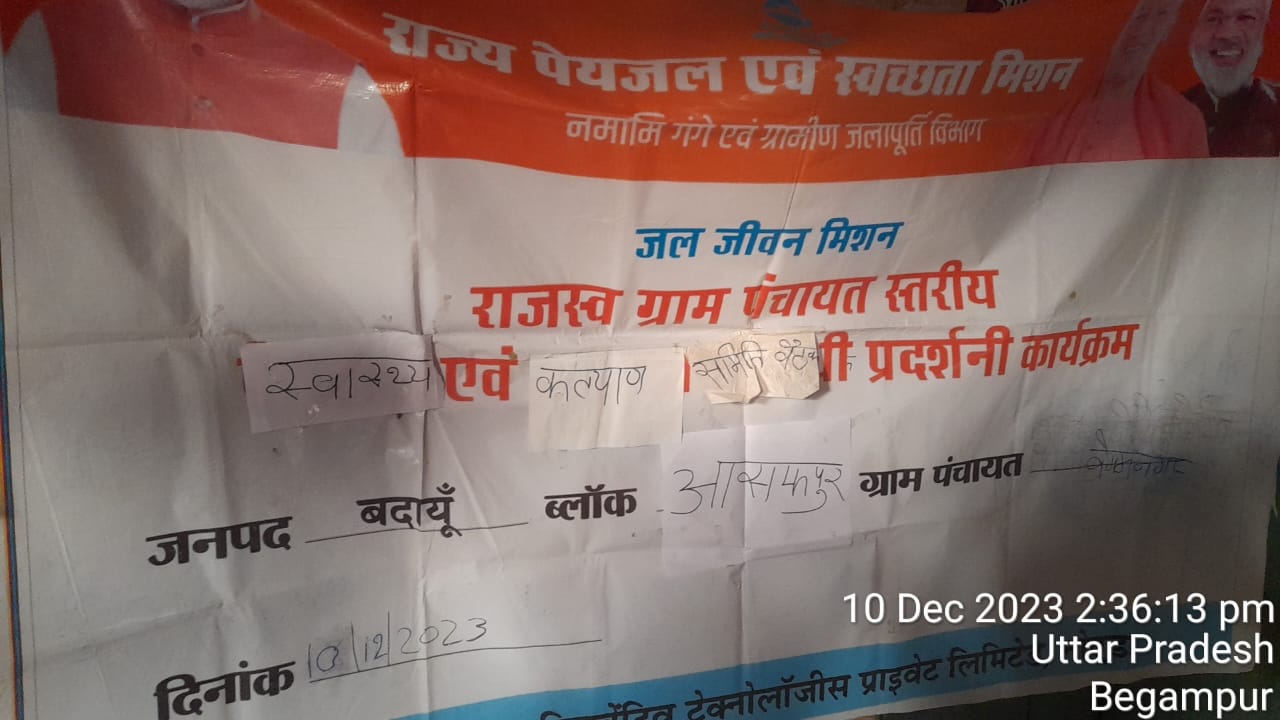 राज्य पेयजल एवं स्वच्छता मिशन
नमामि गंगे एवं ग्रामीण जलापूर्ति विभाग
जल जीवन मिशन
राजस्व ग्राम पंचायत स्तरीय
स्वास्थ्य एवं कल्याण समिति बैठक प्रदर्शनी कार्यक्रम
जनपद बदायूँ ब्लॉक आसफपुर ग्राम पंचायत
दिनांक 10/12/2023
टेक्नोलॉजीस प्राइवेट लिमिटेड
10 Dec 2023 2:36:13 pm
Uttar Pradesh
Begampur